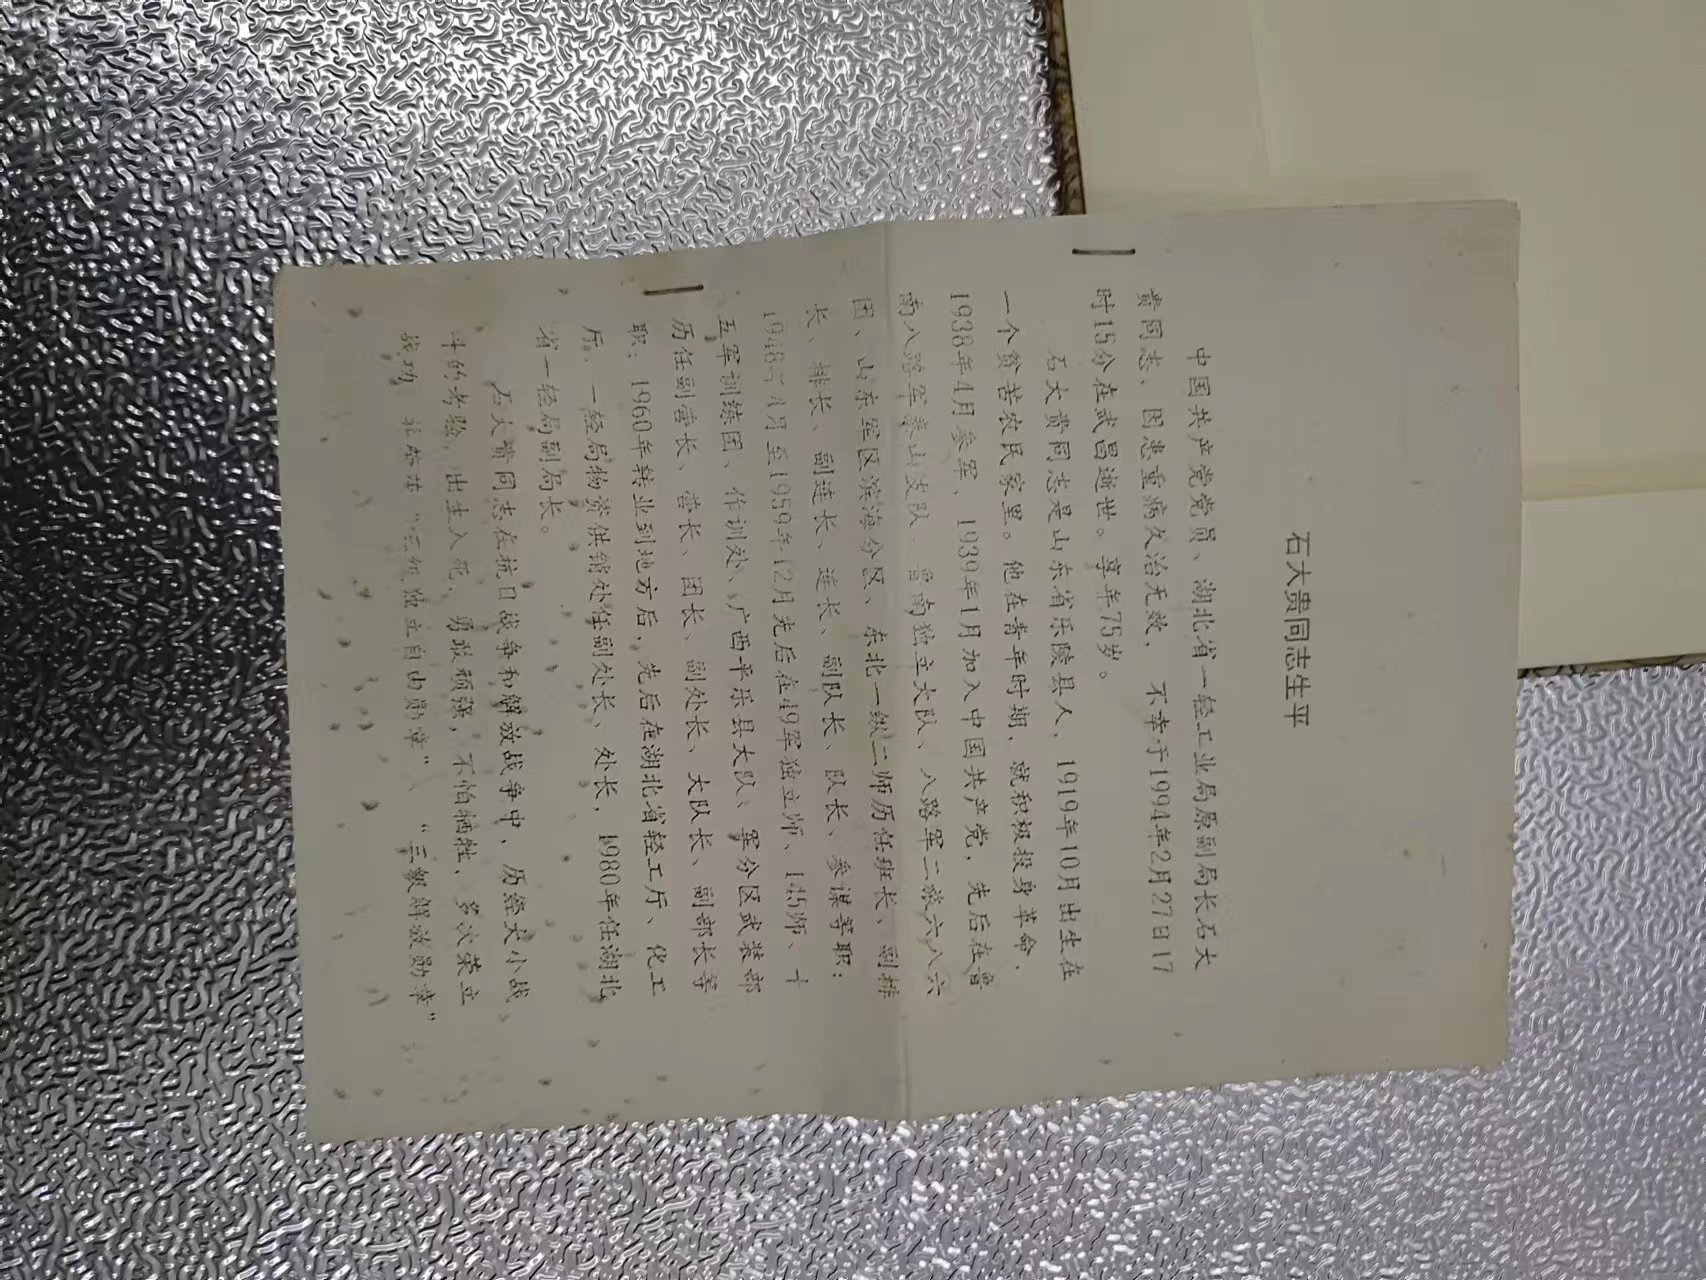 石大贵同志生平
中国共产党党员、湖北省一轻工业局原副局长石大
贵同志、因患重病久治无效，不幸于1994年2月27日17
时15分在武昌逝世。享年75岁。
石大贵同志是山东省乐陵县人，1919年10月出生在
一个贫苦农民家里。他在青年时期、就积极投身革命，
1938年4月参军、1939年1月加入中国共产党，先后在鲁
南八路军泰山支队、鲁南独立大队、八路军二旅六八六
团、山东军区滨海分区、东北一纵二师历任班长、副排
长、排长、副连长、连长、副队长、队长、参谋等职；
1948年4月至1959年12月先后在49军独立师、145师、十
五军训练团、作训处、广西平乐县大队、军分区武装部
历任副营长、营长、团长、副处长、大队长、副部长等
职；1960年转业到地方后，先后在湖北省轻工厅、化工
厅、一轻局物资供销处任副处长、处长，1980年任湖北
省一轻局副局长。
石大贵同志在抗日战争和解放战争中，历经大小战
斗的考验，出生入死，勇敢顽强，不怕牺牲，多次荣立
战功，"三级独立自由勋章"、"三级解放勋章"